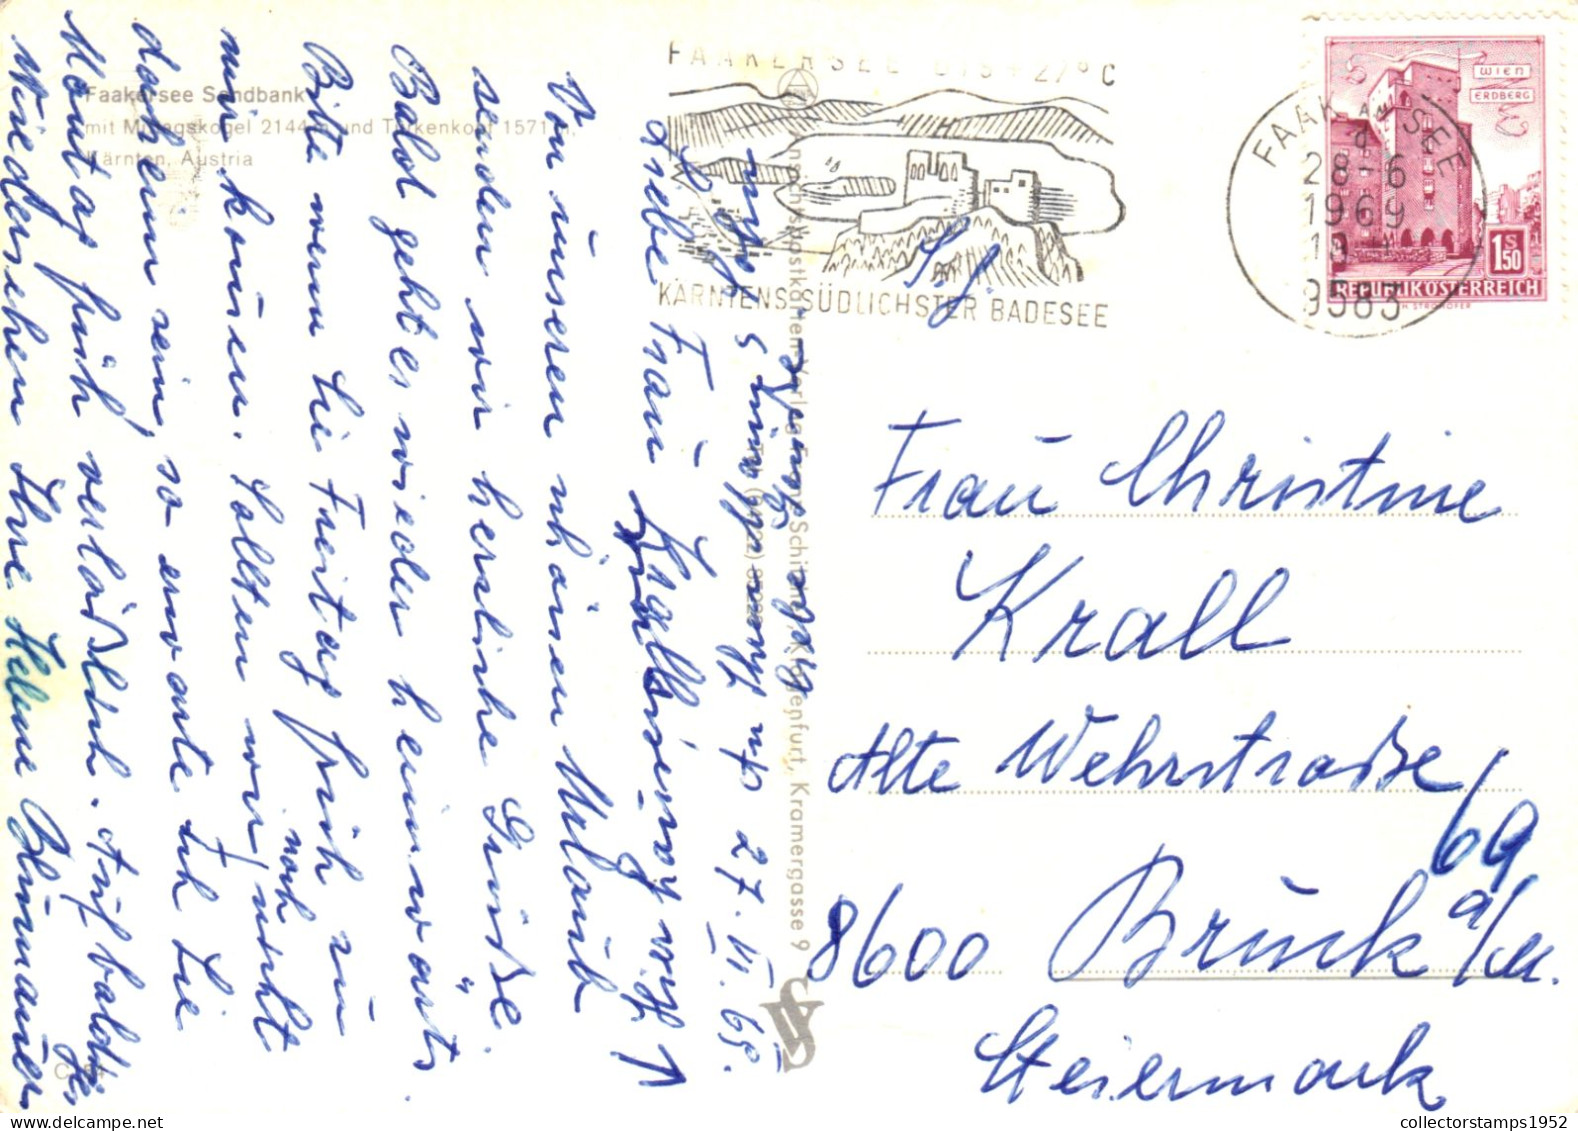 Faakersee Sandbank
mit Mittagskogel 2144 m und Türkenkopf 1571 m.
Kärnten, Austria
FAAKERSEE BIS + 27° C
KÄRNTENS SÜDLICHSTER BADESEE
FAAK AM SEE
28-6
1969
9583
WIEN
ERDBERG
1.50
S
REPUBLIK ÖSTERREICH
H. STROHOFER
27. VI. 69.
Liebe Frau Krall
Von unserem schönen Urlaub
senden wir herzliche Grüße.
Bald geht es wieder heimwärts.
Bitte wenn Sie Freitag früh zu
mir kommen. Sollten wir noch nicht
daheim sein, so erwarte ich Sie
Montag früh verläßlich. Auf baldiges
Wiedersehen Ihre Helene Blümauer
Frau Christine
Krall
Alte Wehrstraße
69
8600 Bruck a/M.
Steiermark
Schild, Klagenfurt, Kramergasse 9
collectorstamps1952